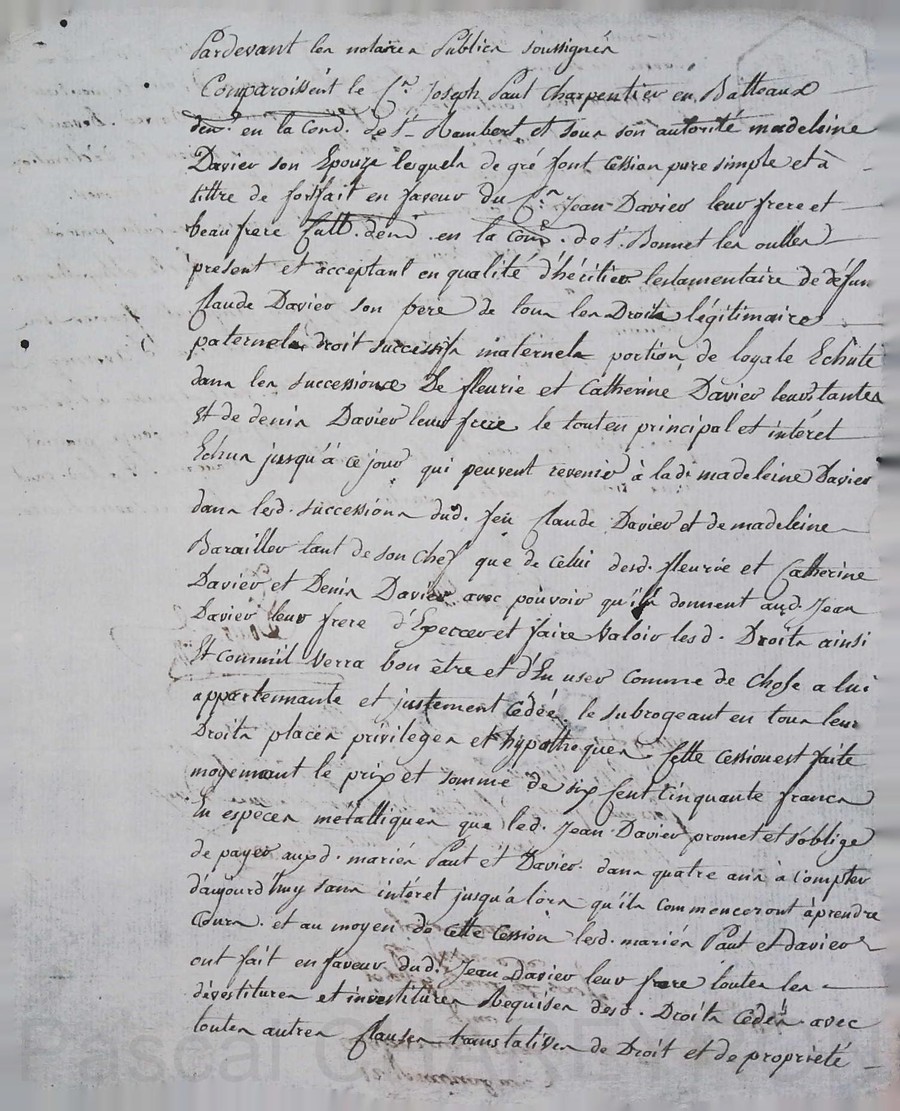 Pardevant les notaires Publics soussignés
Comparoissent le C.en Joseph Paut charpentier en Batteaux
dem.t en la Com.e de S.t Rambert et sous son autorité madeleine
Davier son Epouze lesquels de gré font cession pure simple et à
tittre de forfait en faveur du C.en Jean Davier leur frere et
beaufrere Cult. dem.t en la Com.e de S.t Bonnet les oulles
présent et acceptant en qualité d'héritier testamentaire de défun
Claude Davier son père de tous les Droits légitimaires
paternels droit successifs maternels portion de loyale Echûte
dans les successions De fleurie et Catherine Davier leurs tantes
Et de denis Davier leur frere le tout en principal et intéret
Echus jusqu'à ce jour qui peuvent revenir à lad.e madeleine Davier
dans lesd. successions dud. feu Claude Davier et de madeleine
Barailler tant de son Chef que de celui desd. fleurie et Catherine
Davier et Denis Davier avec pouvoir qu'ils donnent aud. Jean
Davier leur frere d'Exercer et faire Valoir lesd. Droits ainsi
Et comm'il verra bon être et d'En user comme de Chose a lui
appartennante et justement cédée le subrogeant en tous leurs
Droits places privileges et hypotheques Cette cession est faite
moyennant le prix et somme de six Cent Cinquante francs
En espèces métalliques que led. Jean Davier promet et s'oblige
de payer auxd. mariés Paut et Davier dans quatre ans à compter
d'aujourd'huy sans intéret jusqu'alors qu'ils commenceront à prendre
Cours. et au moyen de cette Cession lesd. mariés Paut et davier
ont fait en faveur dud. Jean Davier leur frere toutes les
dévestitures et investitures Requises desd. Droits cédés avec
toutes autres Clauses translatives de Droit et de propriété
Pascal